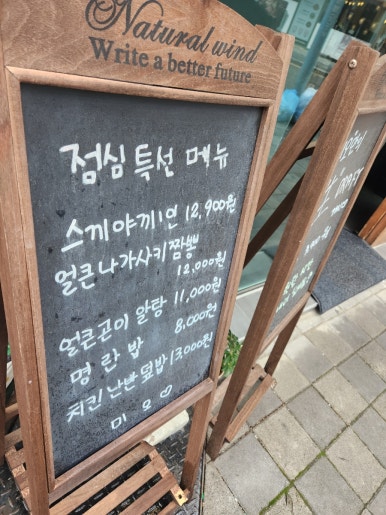 Natural wind
Write a better future
점심 특선 메뉴
스끼야끼1인 12,900원
얼큰나가사키짬뽕
12,000원
얼큰곤이 알탕 11,000원
명란밥 8,000원
치킨난반덮밥 13,000원
미오♡